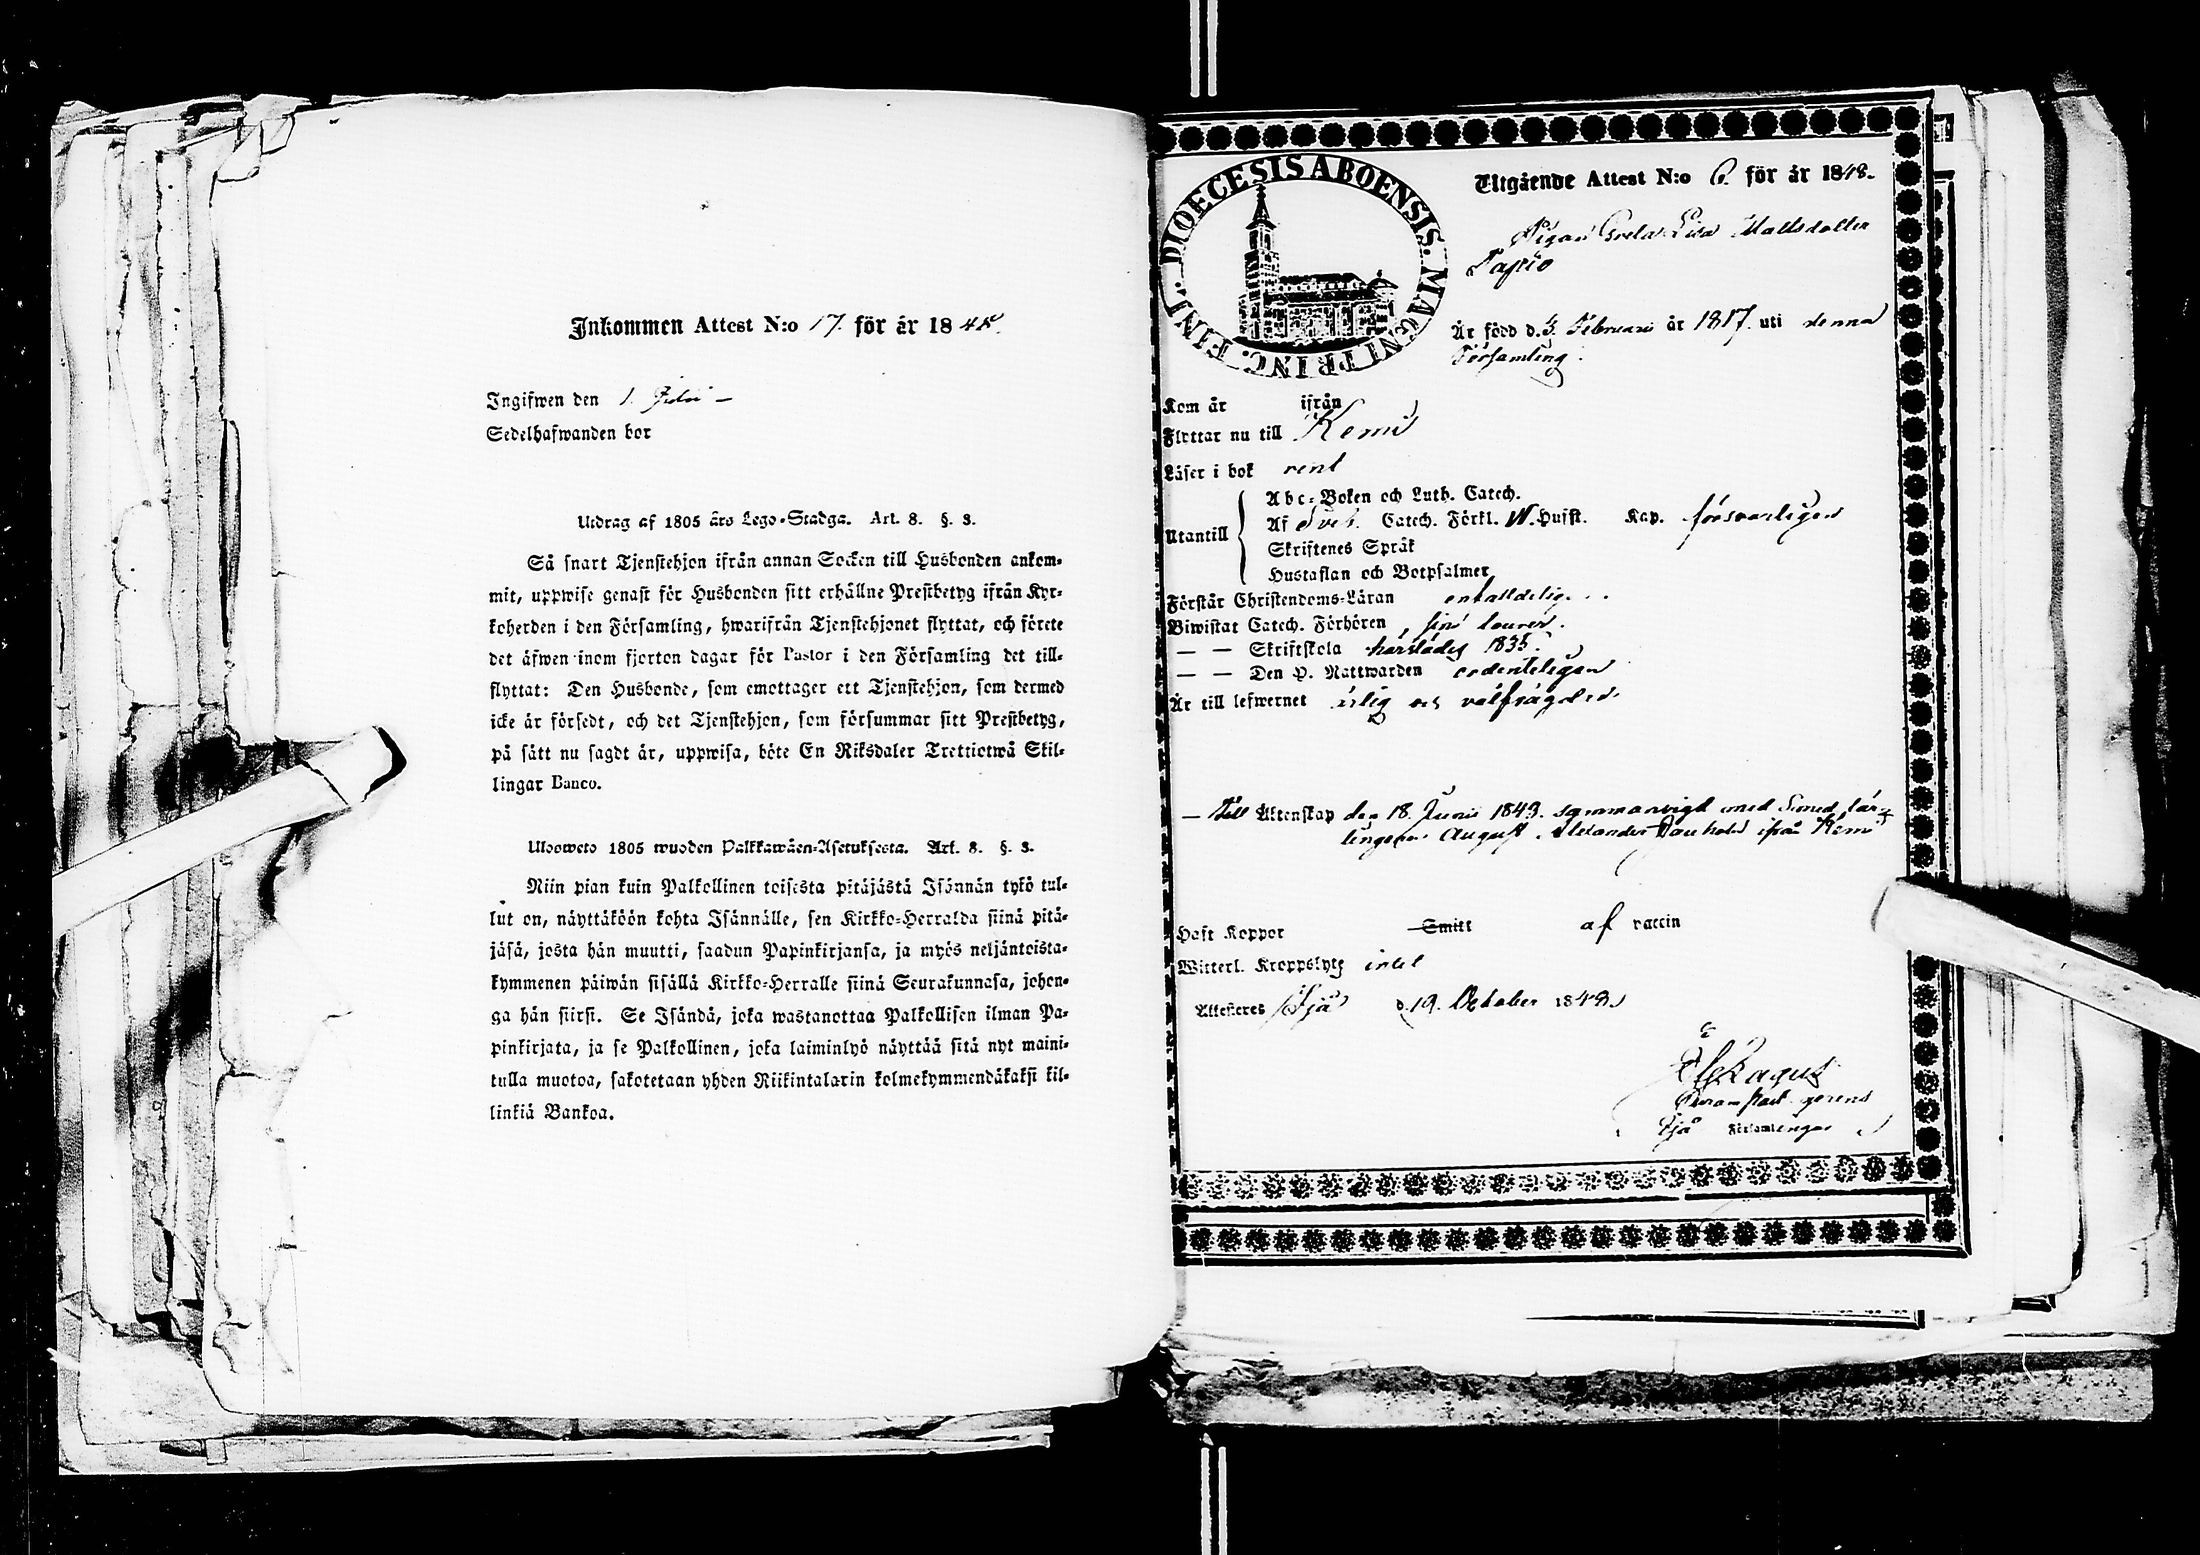 Inkommen Attest N:o 17. för år 1848.
Ingifwen den 1. Julii –
Sedelhafwanden bor
Utdrag af 1805 års Lego-Stadga. Art. 8. §. 3.
Så snart Tjenstehjon ifrån annan Socken till Husbonden ankom-
mit, uppwise genast för Husbonden sitt erhållne Prestbetyg ifrån Kyr-
koherden i den Församling, hwarifrån Tjenstehjonet flyttat, och förete
det äfwen inom fjorton dagar för Pastor i den Församling det till-
flyttat: Den Husbonde, som emottager ett Tjenstehjon, som dermed
icke är försedt, och det Tjenstehjon, som försummar sitt Prestbetyg,
på sätt nu sagdt är, uppwisa, böte En Riksdaler Trettiotwå Skil-
lingar Banco.
Ulosweto 1805 wuoden Palkkawäen-Asetuksesta. Art. 8. §. 3.
Niin pian kuin Palkollinen toisesta pitäjästä Isännän tykö tul-
lut on, näyttäköön kohta Isännälle, sen Kirkko-Herralda siinä pitä-
jäsä, josta hän muutti, saadun Papinkirjansa, ja myös neljäntoista-
kymmenen päiwän sisällä Kirkko-Herralle siinä Seurakunnasa, johon-
ga hän siirsi. Se Isändä, joka wastanottaa Palkollisen ilman Pa-
pinkirjata, ja se Palkollinen, joka laiminlyö näyttää sitä nyt maini-
tulla muotoa, sakotetaan yhden Riikintalarin kolmekymmendäkaksi kil-
linkiä Bankoa.
DIOECESIS ABOENSIS. MAGNI PRINC. FINL.
Utgående Attest N:o 6. för år 1848.
Pigan Greta Lisa Mattsdotter
Tapio
Är född d. 3. Februarii år 1817. uti denna
Församling.
Kom år ifrån
Flyttar nu till Kemi
Läser i bok rent
Utantill
Abc-Boken och Luth. Catech.
Af Sveb. Catech. Förkl. Husst. Kap. försvarligen
Skriftenes Språk
Hustaflan och Botpsalmer
Förstår Christendoms-Läran enfalldelig.
Biwistat Catech. Förhören sine lovover.
— — Skriftskola härstädes 1835.
— — Den H. Nattwarden ordenteligen
Är till lefwernet ärlig och välfrägdad
— Till Äktenskap den 18. Junii 1843. sammanvigd med Smedslär-
lingen August Alexander ifrån Kemi
Haft Koppor Smitt af vaccin
Witterl. Kroppslyte intet
Attesteres Ijå d. 19. October 1848.
Past gerens
Ijå Församlingar